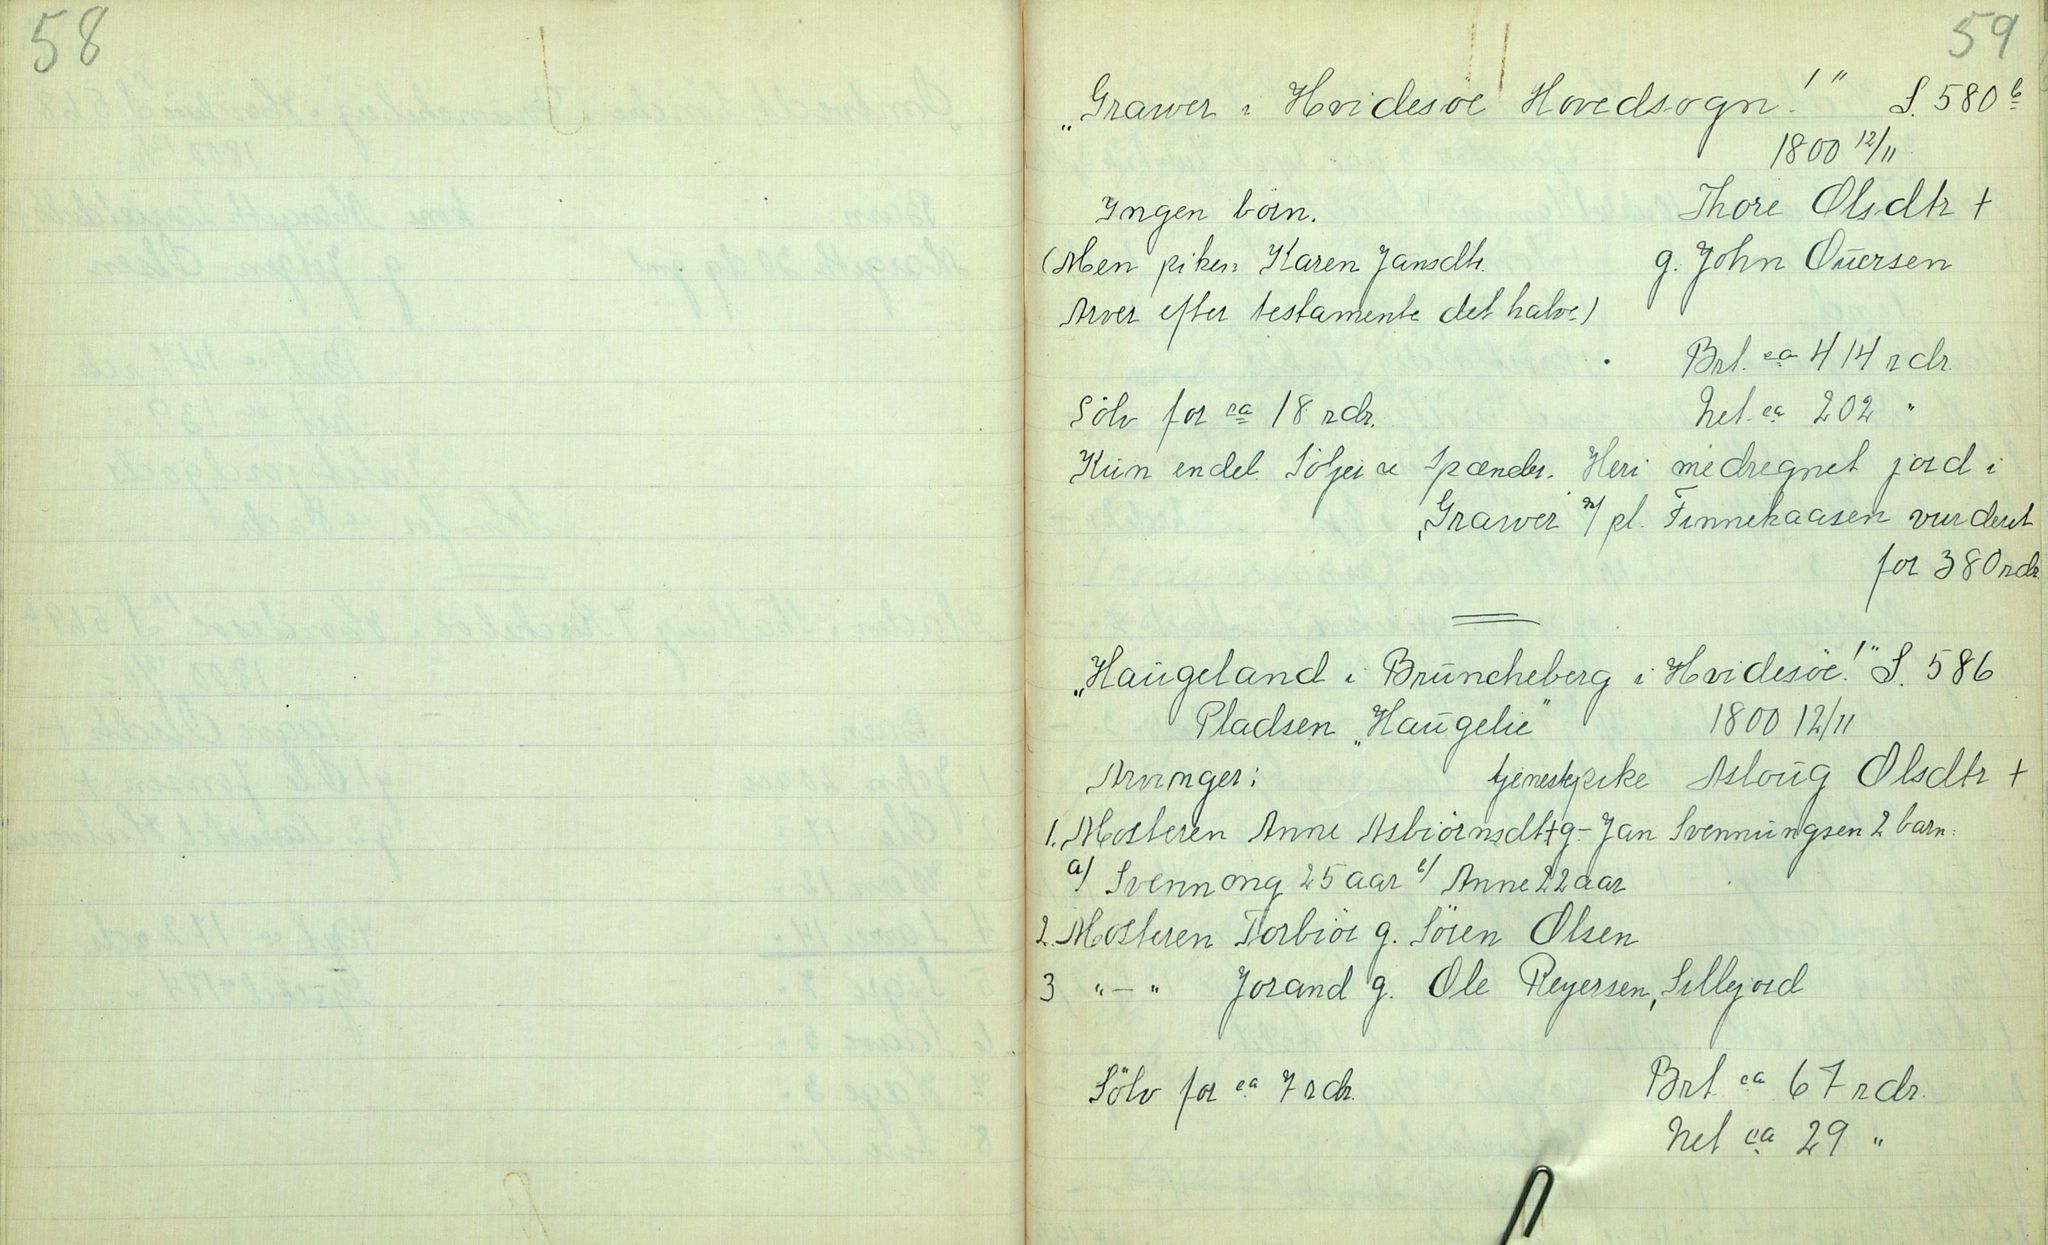 58
59
„Grawer i Hvidesöe Hovedsogn!" S. 580 b
1800 12/11
Yngen börn. Thore Olsdtr +
(Men piken Karen Jansdtr. g. John Ouersen
Arver efter testamente det halve)
Brt. ca 414 rdr.
Sölv for ca 18 rdr. Net. ca 202 "
Kun endel Söljer Spænder. Heri medregnet jord i
„Grawer" m/ pl. Finnekaasen vurderet
for 380 rdr
„Haugeland i Bruncheberg i Hvidesöe!" S. 586
Pladsen „Haugelie" 1800 12/11
Arvinger: tjenestepike Asloug Olsdtr +
1. Mosteren Anne Asbiörnsdtr + g. Jan Svennungsen 2 barn:
a/ Svennong 25 aar b/ Anne 22 aar
2. Mosteren Torbiör g. Sören Olsen
3 "—" Jorand g. Ole Reyersen, Sillejord
Sölv for ca 7 rdr. Brt. ca 67 rdr.
Net ca 29 "